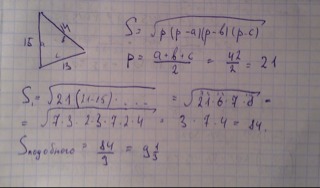 15
14
13
S = √p(p-a)(p-b)(p-c)
p = a+b+c/2 = 42/2 = 21
S₁ = √21(21-15)· . . . = √21·6·7·8 =
= √7·3·2·3·7·2·4 = 3·7·4 = 84.
Sподобного = 84/9 = 9 1/3